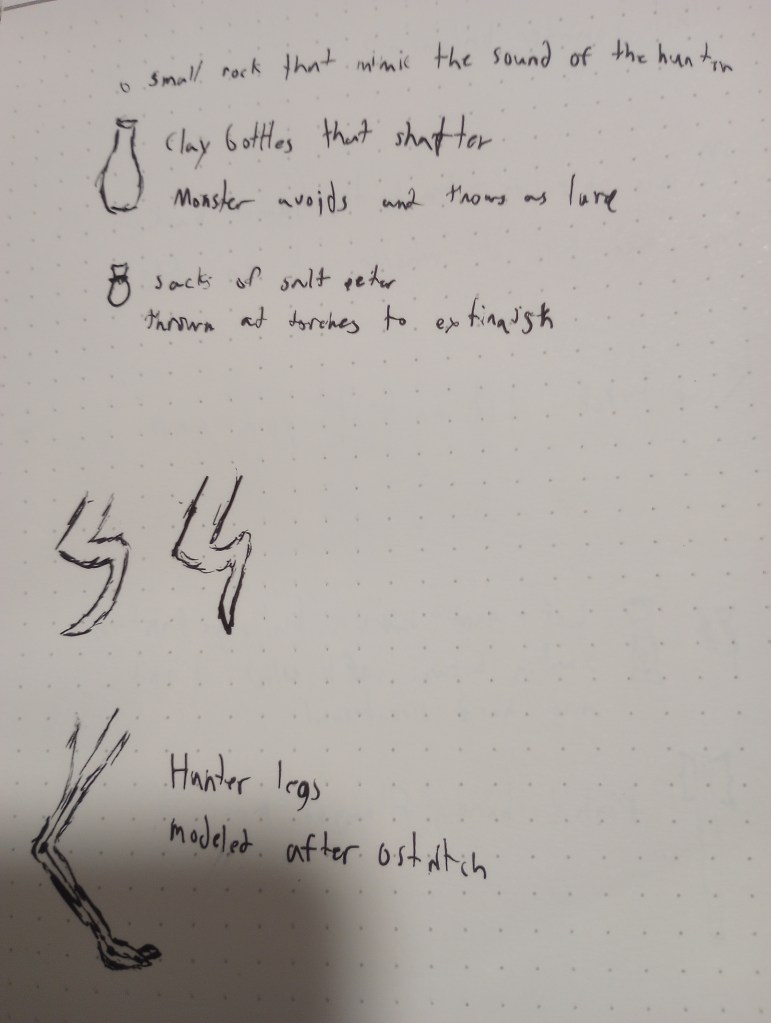 small rock that mimic the sound of the hunter
clay bottles that shatter
Monster avoids and throws as lure
sacks of salt peter
thrown at torches to extinquish
Hunter legs
modeled after ostritch